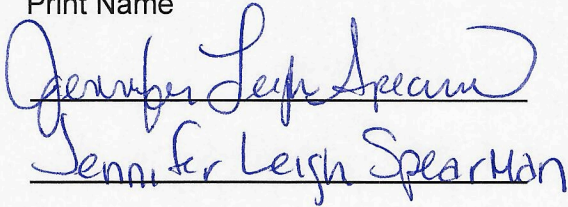 Print Name
Jennifer Leigh Spearm
Jennifer Leigh Spearman